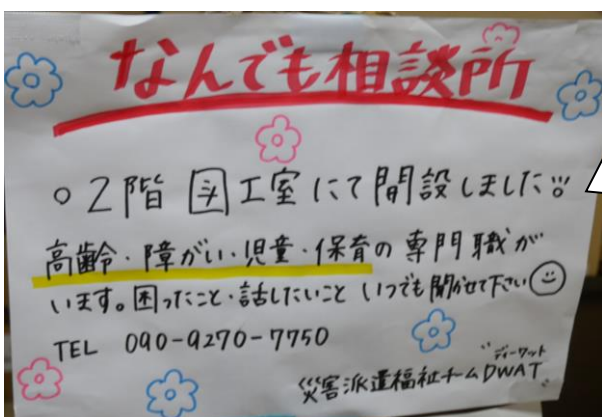 なんでも相談所
○2階 図工室にて開設しました!!
高齢・障がい・児童・保育の専門職が
います。困ったこと・話したいこと いつでも聞かせて下さい
TEL 090-9270-7750
災害派遣福祉チーム"DWAT"
ディーワット